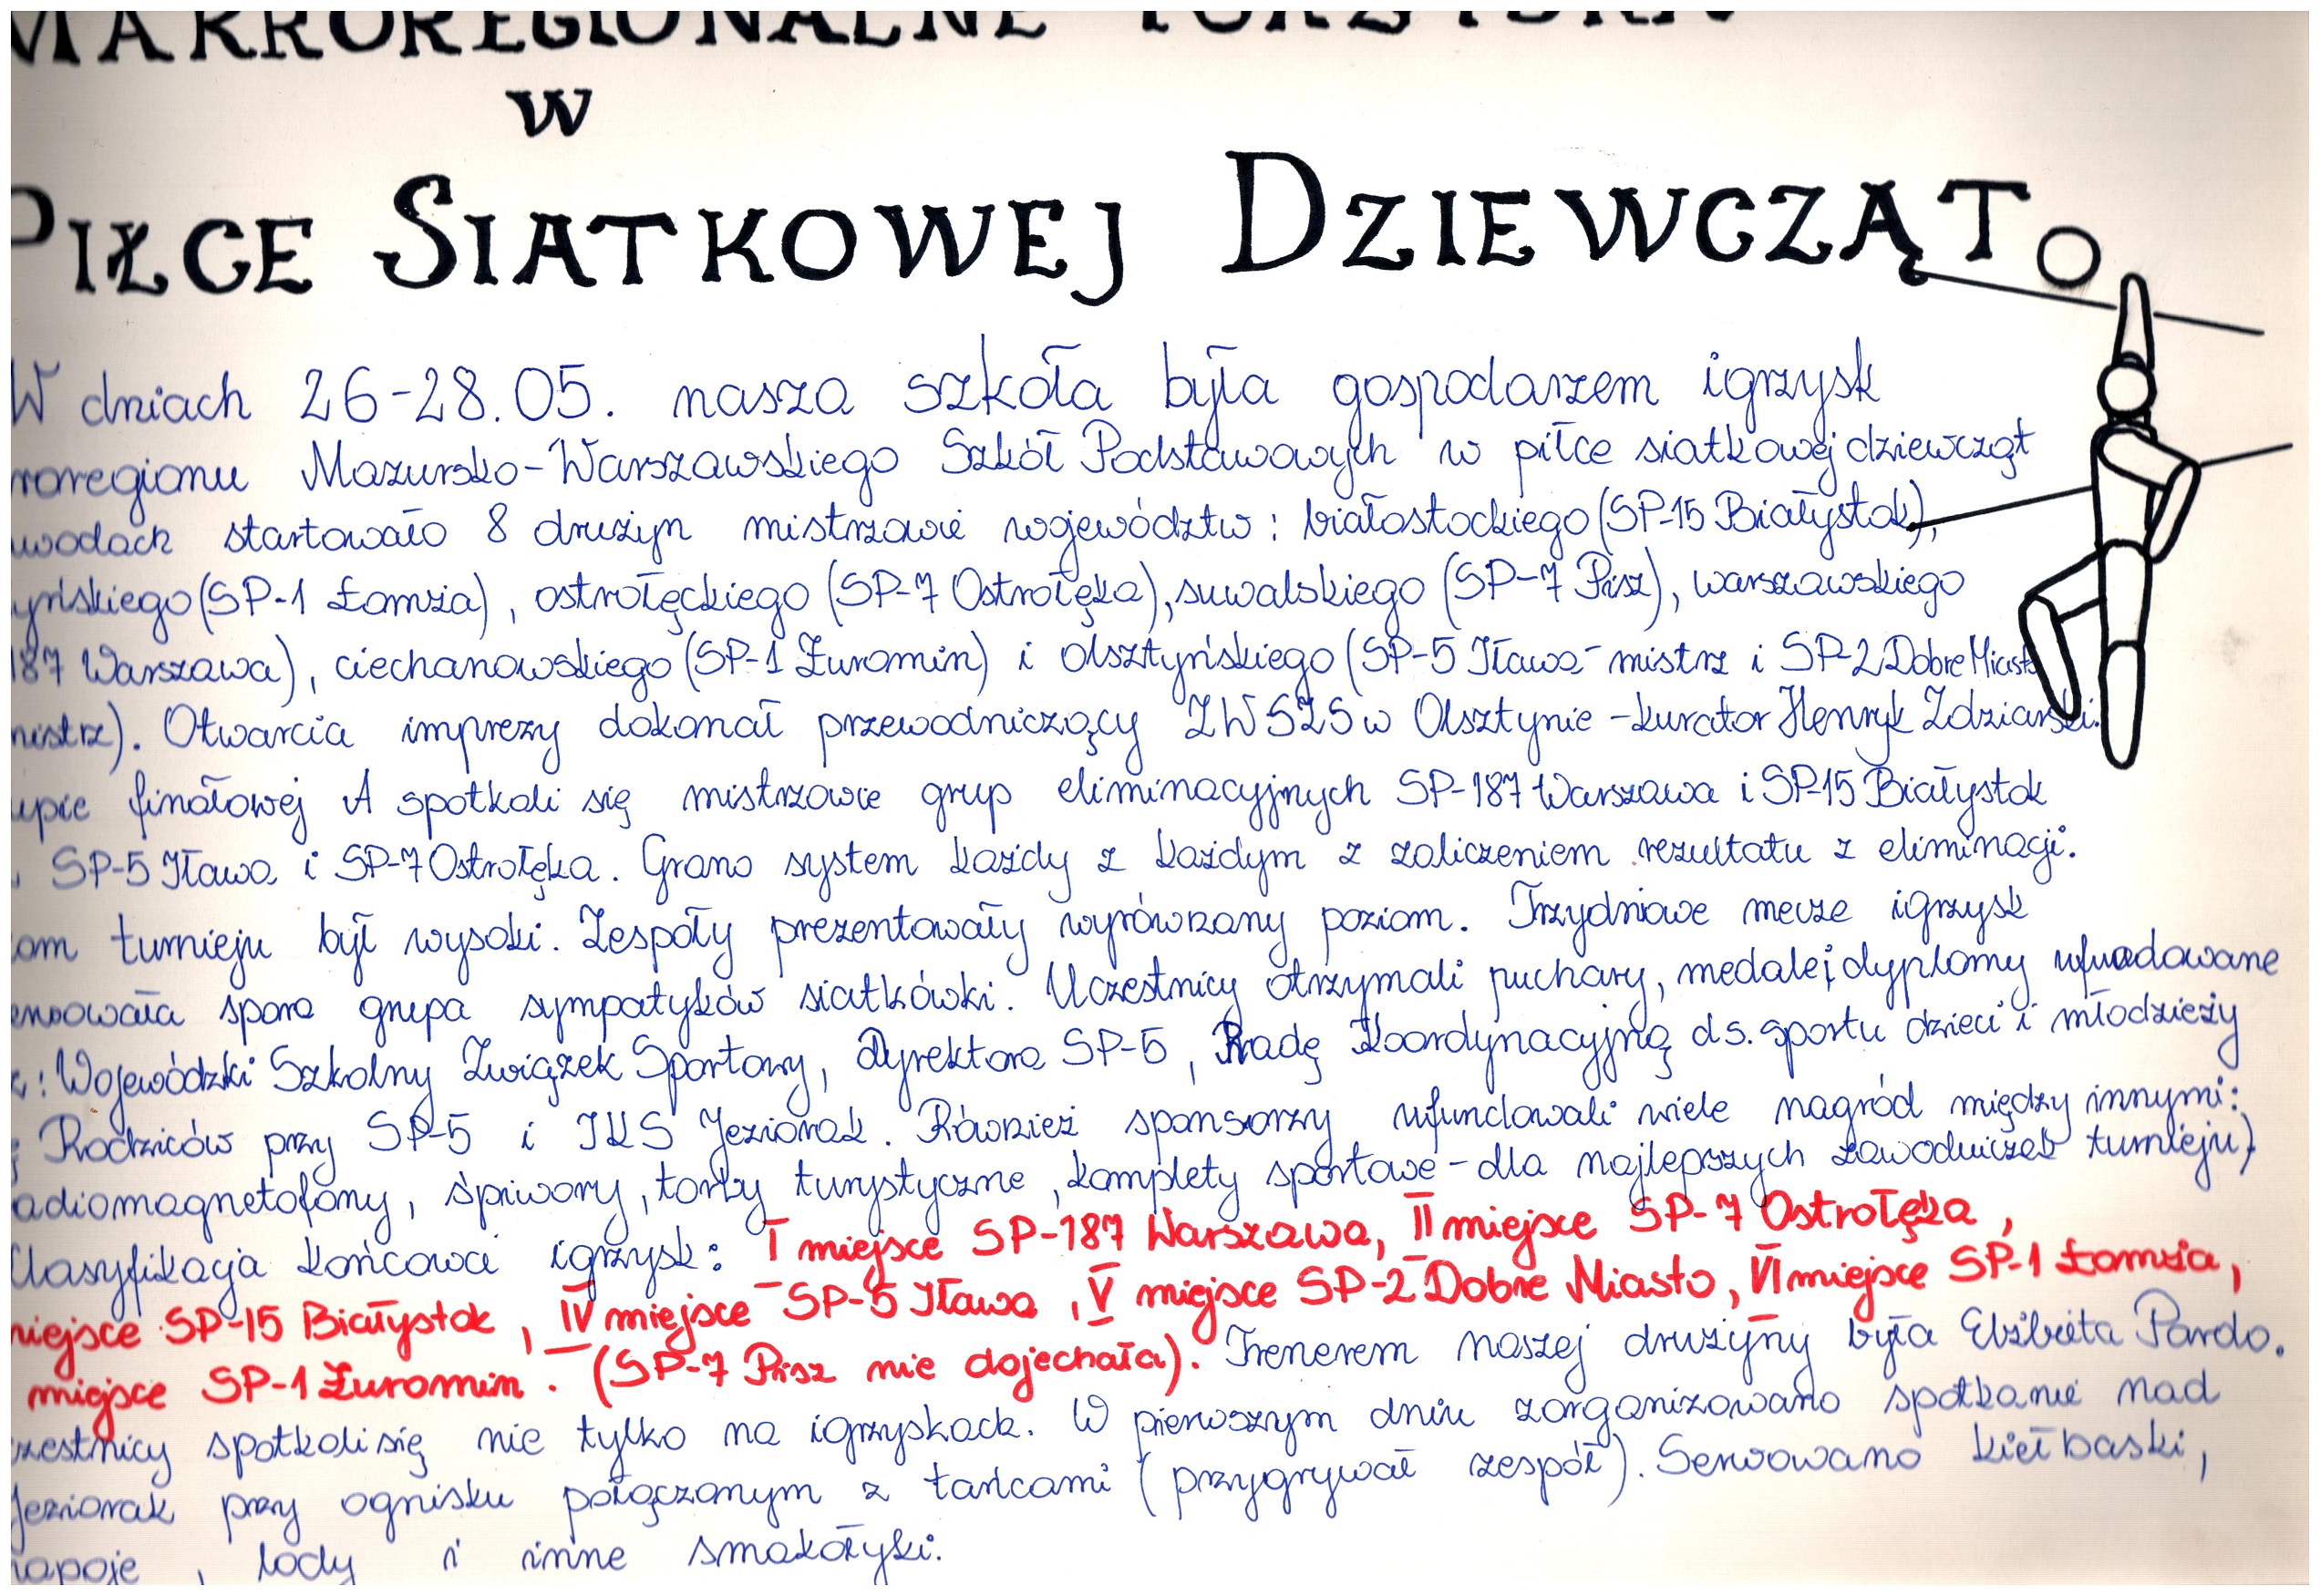 MAKROREGIONALNE IGRZYSKA
W
PIŁCE SIATKOWEJ DZIEWCZĄT
W dniach 26-28.05. nasza szkoła była gospodarzem igrzysk
roregionu Mazursko-Warszawskiego Szkół Podstawowych w piłce siatkowej dziewcząt
wodach startowało 8 drużyn mistrzowie województw: białostockiego (SP-15 Białystok),
yńskiego (SP-1 Łomża), ostrołęckiego (SP-7 Ostrołęka), suwalskiego (SP-7 Pisz), warszawskiego
187 Warszawa), ciechanowskiego (SP-1 Żuromin) i olsztyńskiego (SP-5 Iława-mistrz i SP-2 Dobre Miasto
mistrz). Otwarcia imprezy dokonał przewodniczący ZW SZS w Olsztynie - kurator Henryk Zdziarski.
upie finałowej A spotkali się mistrzowie grup eliminacyjnych SP-187 Warszawa i SP-15 Białystok
, SP-5 Iława i SP-7 Ostrołęka. Grano system każdy z każdym z zaliczeniem rezultatu z eliminacji.
om turnieju był wysoki. Zespoły prezentowały wyrównany poziom. Trzydniowe mecze igrzysk
erwowała spora grupa sympatyków siatkówki. Uczestnicy otrzymali puchary, medale i dyplomy ufundowane
z: Wojewódzki Szkolny Związek Sportowy, dyrektora SP-5, Radę Koordynacyjną ds. sportu dzieci i młodzieży
ę Rodziców przy SP-5 i IKS Jeziorak. Również sponsorzy ufundowali wiele nagród między innymi:
adiomagnetofony, śpiwory, torby turystyczne, komplety sportowe - dla najlepszych zawodniczek turnieju)
Klasyfikacja końcowa igrzysk: I miejsce SP-187 Warszawa, II miejsce SP-7 Ostrołęka,
miejsce SP-15 Białystok, IV miejsce SP-5 Iława, V miejsce SP-2 Dobre Miasto, VI miejsce SP-1 Łomża,
miejsce SP-1 Żuromin. (SP-7 Pisz nie dojechała). Trenerem naszej drużyny była Elżbieta Pardo.
zestnicy spotkali się nie tylko na igrzyskach. W pierwszym dniu zorganizowano spotkanie nad
Jeziorak przy ognisku połączonym z tańcami (przygrywał zespół). Serwowano kiełbaski,
napoje, lody i inne smakołyki.